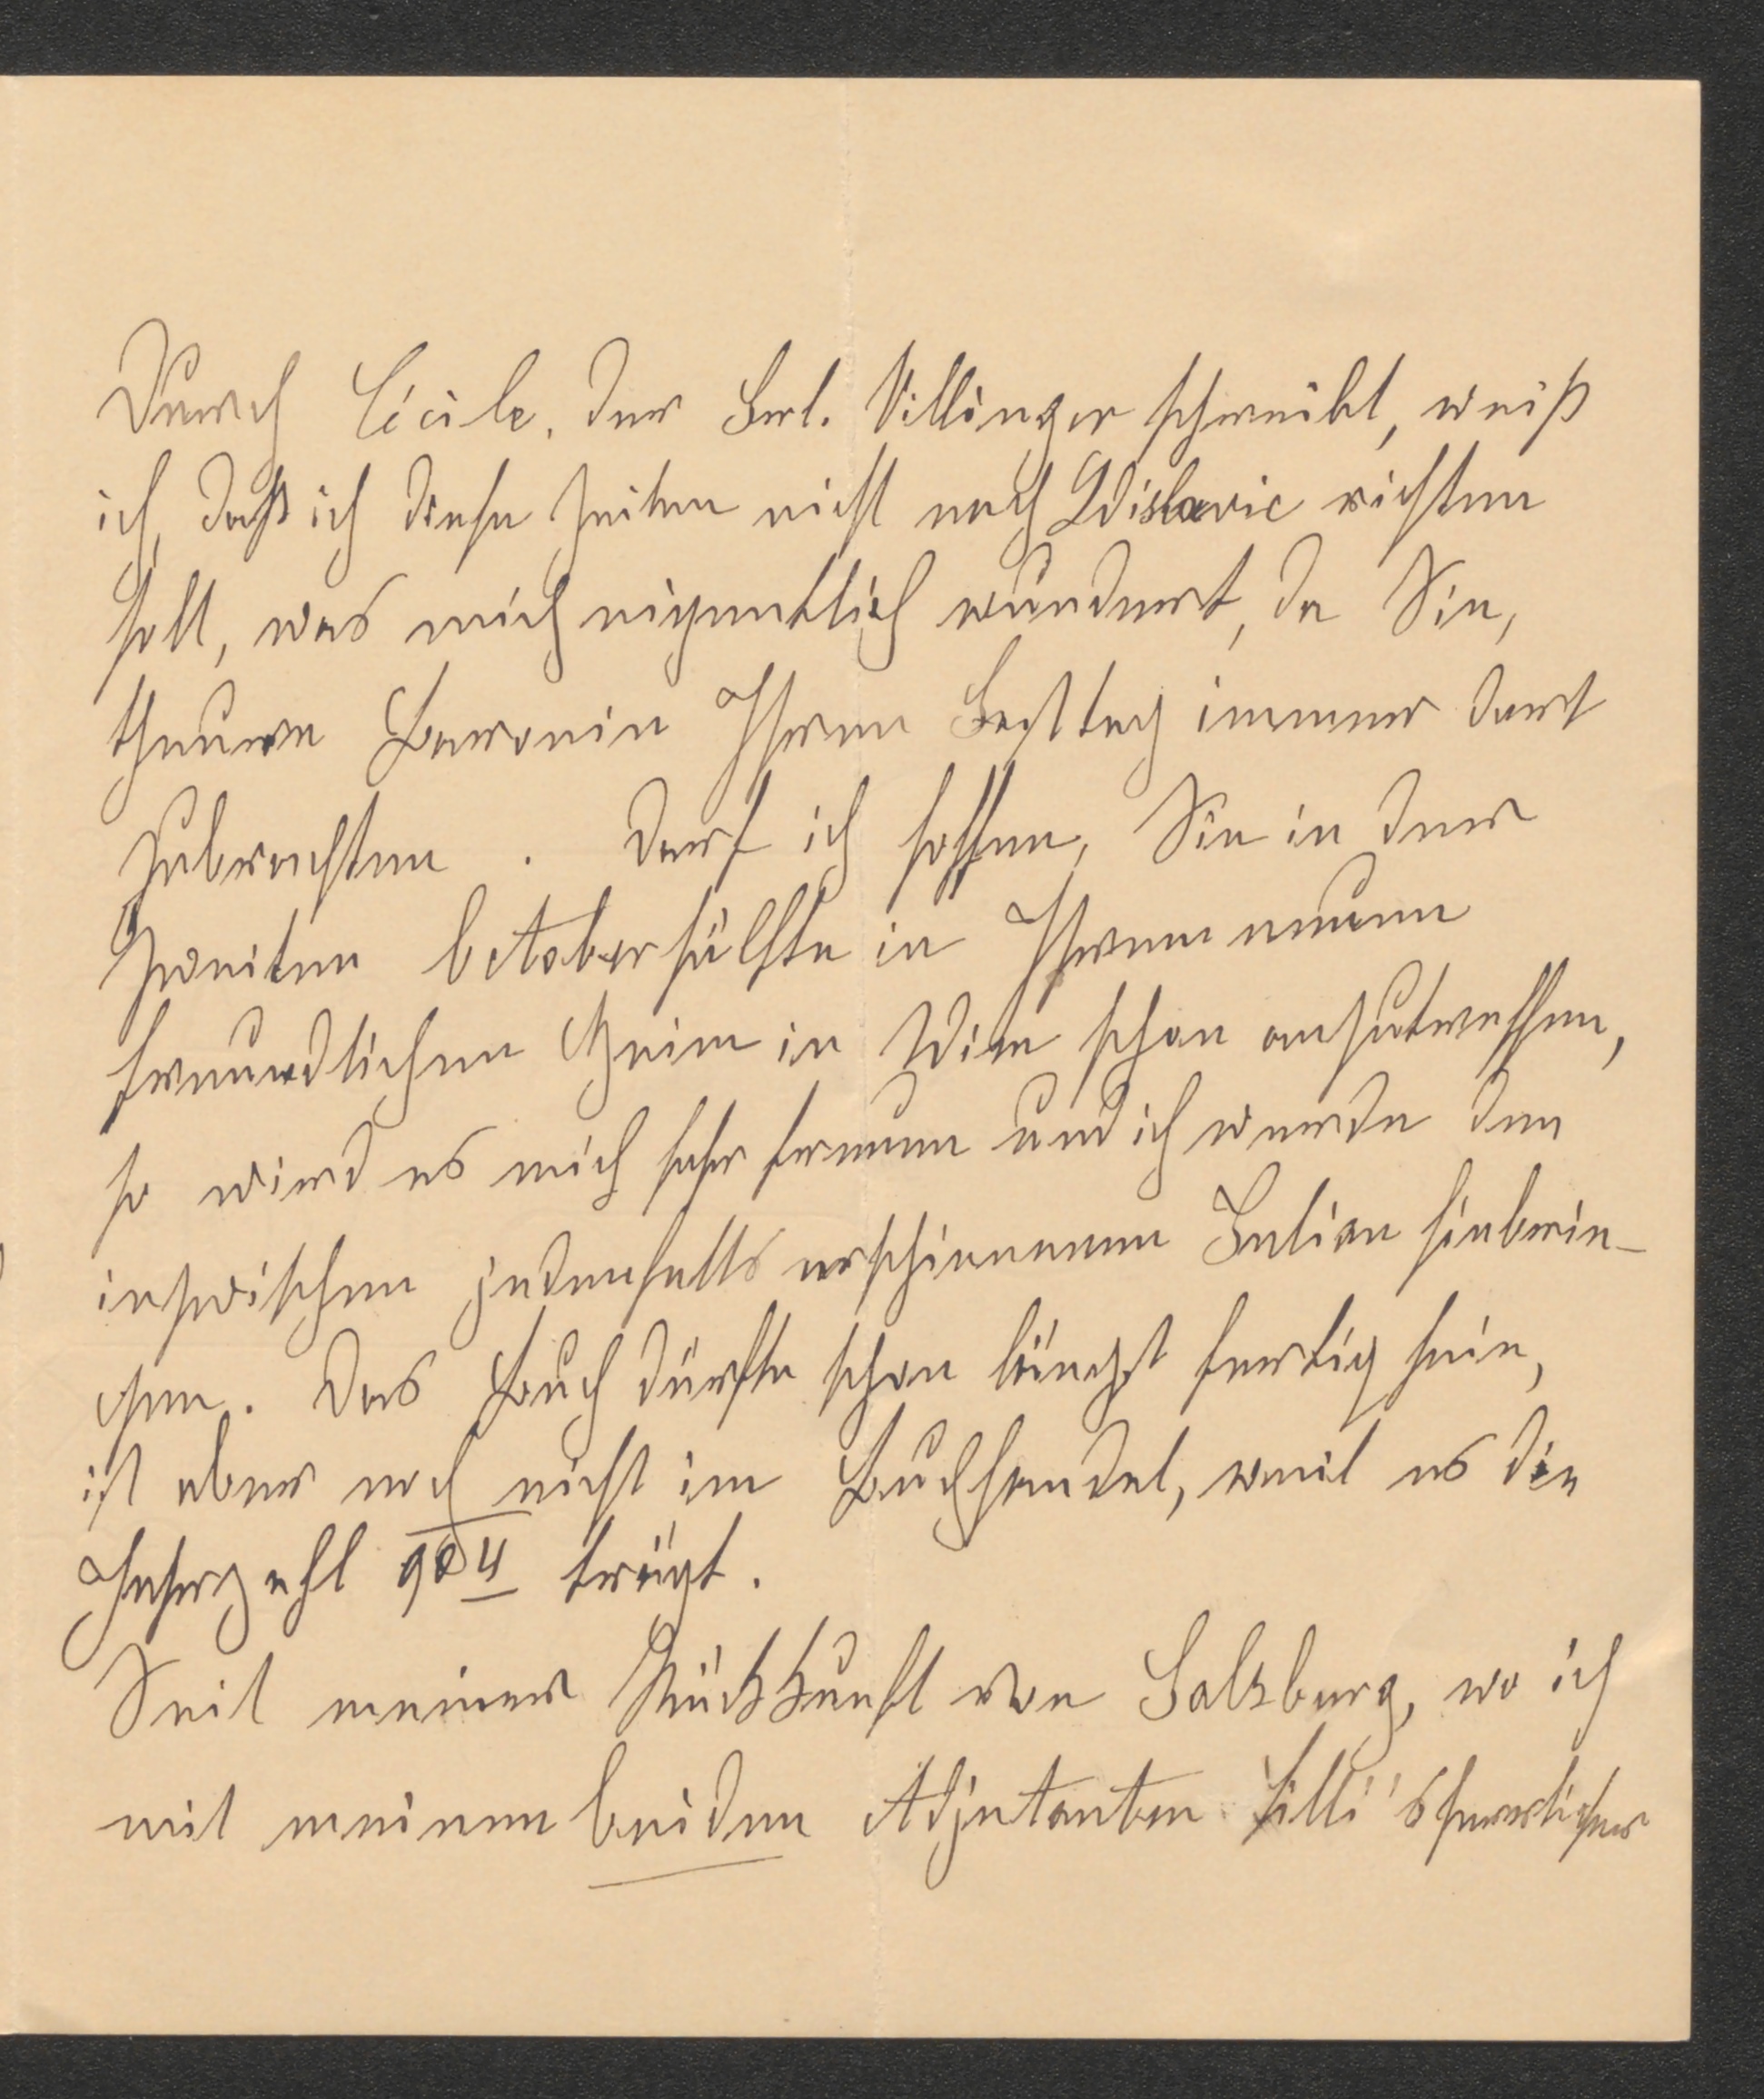 Durch Cécile, der Frl. Villinger schreibt, weiß
ich, daß ich diese Zeilen nicht nach Zdislavic richten
soll, was mich eigentlich wundert, da Sie,
theuere Baronin Ihren Festtag immer dort
zubrachten. Darf ich hoffen, Sie in der
zweiten Octoberhälfte in Ihrem neuen
freundlichen Heim in Wien schon anzutreffen,
so wird es mich sehr freuen und ich werde den
inzwischen jedenfalls erschienenen Julian hinbrin-
gen. Das Buch dürfte schon längst fertig sein,
ist aber noch nicht im Buchhandel, weil es die
Jahrzahl 904 trägt.
Seit meiner Rückkunft von Salzburg, wo ich
mit meinen beiden Adjutanten Lilli's